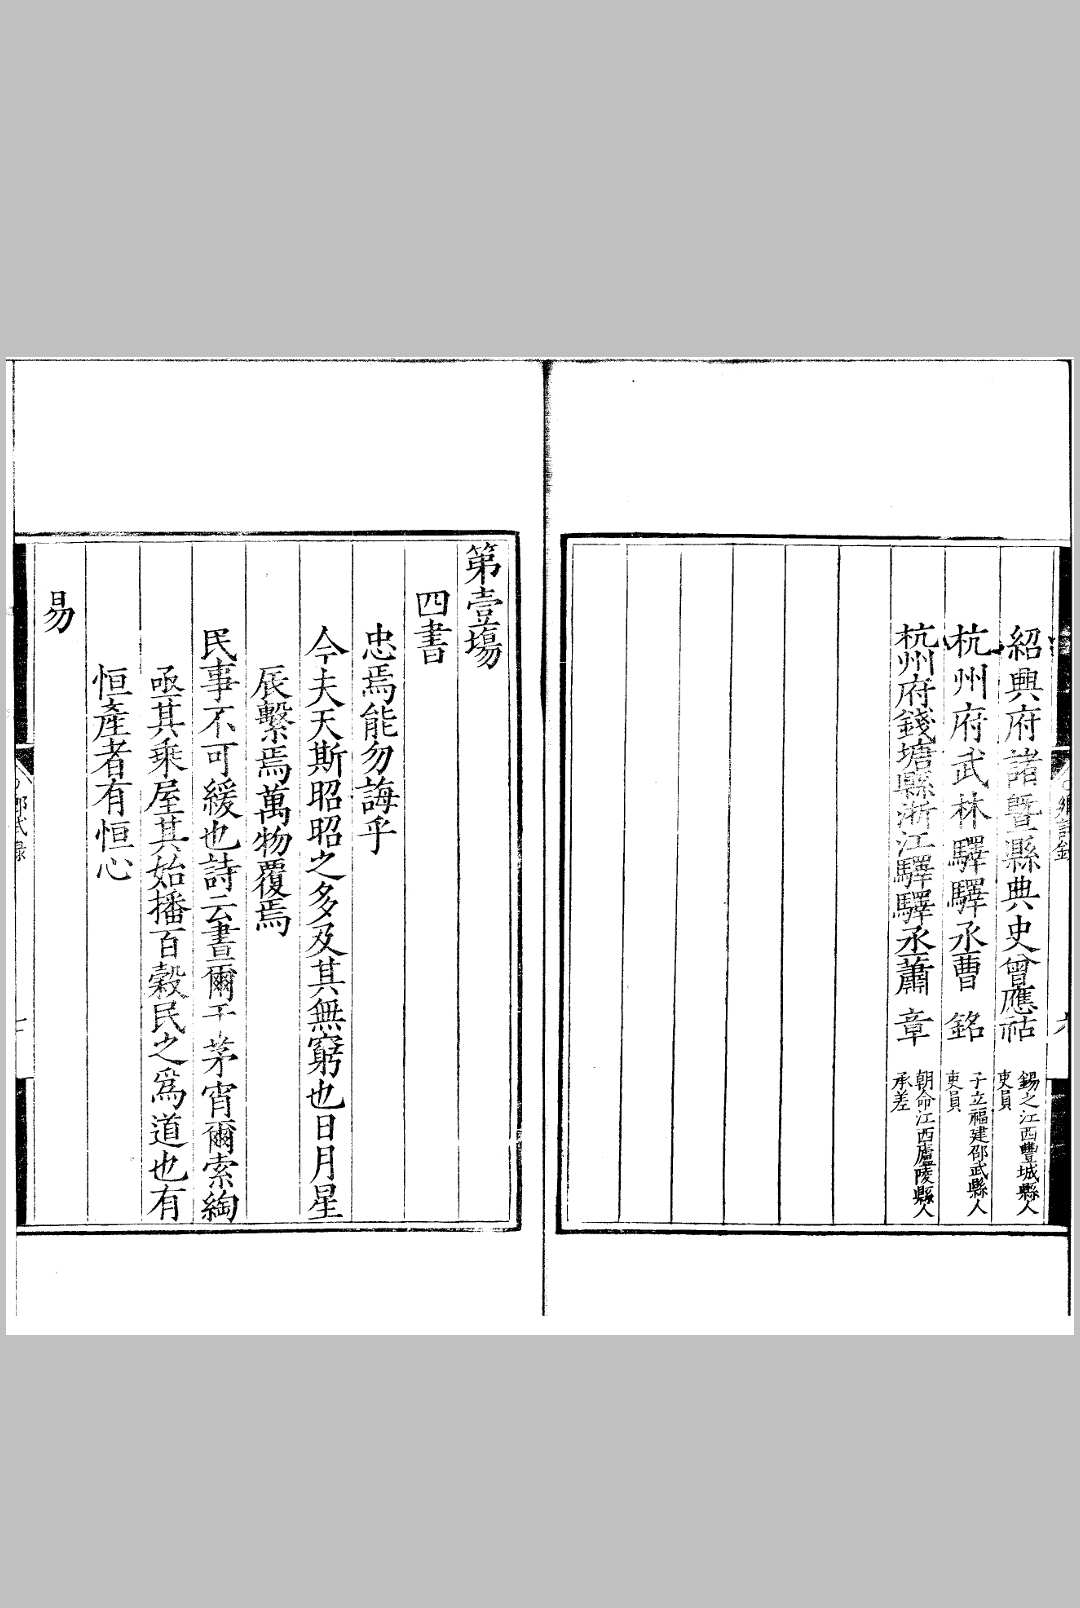 紹興府諸曁縣典史曾應祜 錫之江西豐城縣人吏員
杭州府武林驛驛丞曹 銘 子立福建邵武縣人吏員
杭州府錢塘縣浙江驛驛丞蕭 章 朝命江西廬陵縣人承差
第壹場
四書
忠焉能勿誨乎
今夫天斯昭昭之多及其無窮也日月星
辰繫焉萬物覆焉
民事不可緩也詩云晝爾于茅宵爾索綯
亟其乘屋其始播百穀民之爲道也有
恒產者有恒心
易